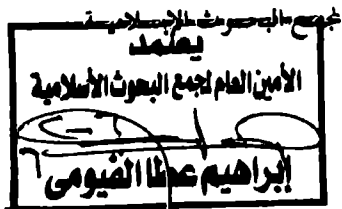 مجمع البحوث الإسلامية
يعتمد
الأمين العام لمجمع البحوث الأسلامية
إبراهيم عطا الفيومى